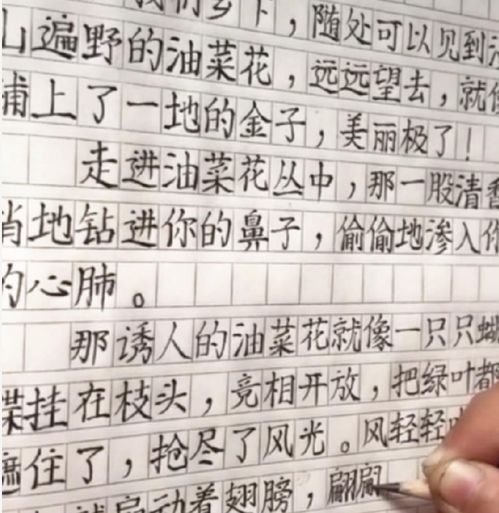 乡下，随处可以见到
山遍野的油菜花，远远望去，就
铺上了一地的金子，美丽极了！
走进油菜花丛中，那一股清香
地钻进你的鼻子，偷偷地渗入你
的心肺。
那诱人的油菜花就像一只只蝴
蝶挂在枝头，竞相开放，把绿叶都
遮住了，抢尽了风光。风轻轻
扇动着翅膀，翩